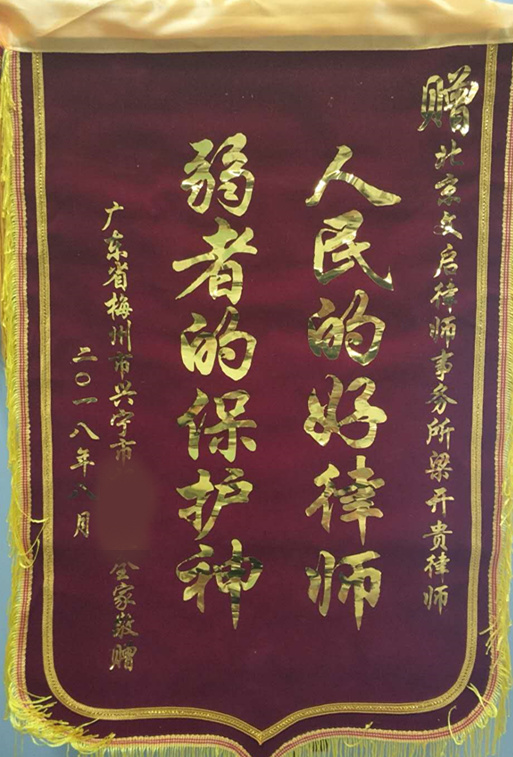 赠北京文启律师事务所梁开贵律师
人民的好律师
弱者的保护神
广东省梅州市兴宁市 全家敬赠
二〇一八年八月